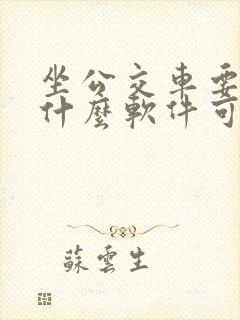 坐公交車要
什麼軟件可
蘇雲生